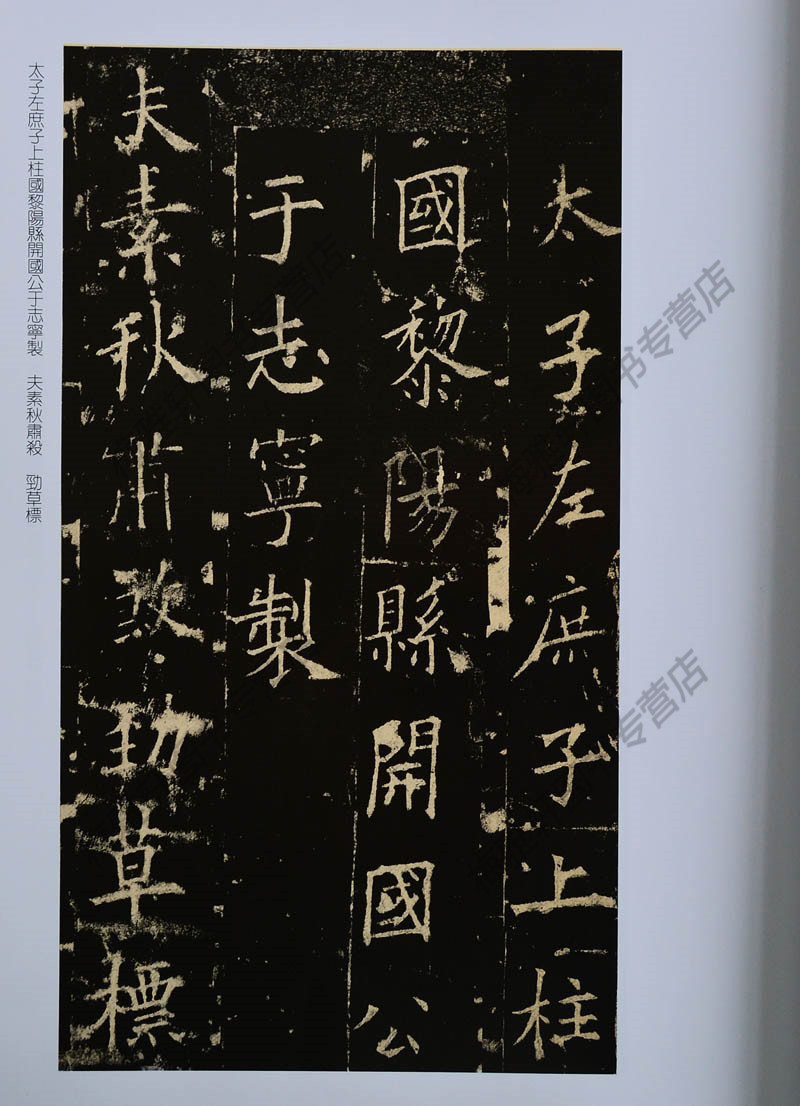 太子左庶子上柱
國黎陽縣開國公
于志寧製
夫素秋肅煞勁草標
太子左庶子上柱國黎陽縣開國公于志寧製　夫素秋肅殺　勁草標
书专营店
书专营店